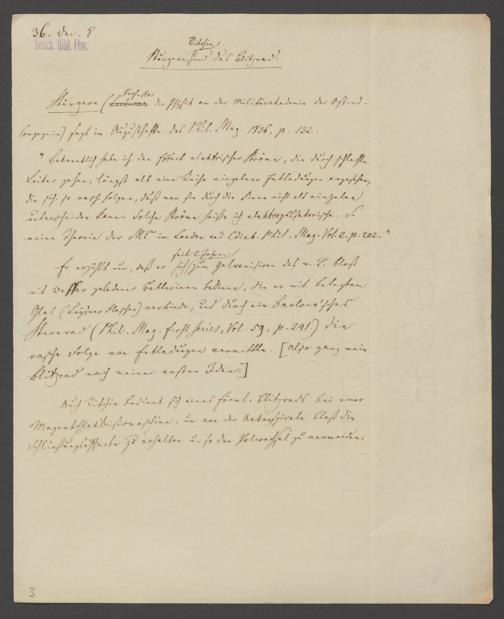 36. Dec. 8.
Senck. Bibl. Ffm.
Ritchie
Sturgeon und das Blitzrad.
Sturgeon (Professor der Physik an der Militärakademie der Ostind.
Compagnie) sagt im Augusthefte des Phil. Mag. 1836, p. 132:
"Bekanntlich habe ich den Effect elektrischer Ströme, die durch schlechte
Leiter gehen, längst als eine Reihe einzelner Entladungen angesehen,
die sich so rasch folgen, daß man sie durch die Sinne nicht als einzelne
unterscheiden kann. Solche Ströme heiße ich elektropulsatorische. S
meine Theorie der in London and Edinb. Phil. Mag. Vol 2. p. 202."
Er erzählt nun, daß er seit 2 Jahren sich zum Galvanisiren des
mit geladener Batterien bediene, die er mit belegtem
Glas (Leydner Flaschen) verbinde, und durch ein Barlow'sches
Sternrad (Phil. Mag. First Series, Vol. 59, p. 241) die
rasche Folge von Entladungen vermittle. [Also ganz mein
Blitzrad nach meiner ersten Idee.]
Auch Ritchie bedient sich eines förml. Blitzrads bei einer
Magnetelektrisirmaschine, um von der bloß die
Schließungseffecte zu erhalten u. so den Polwechsel zu vermeiden.
3